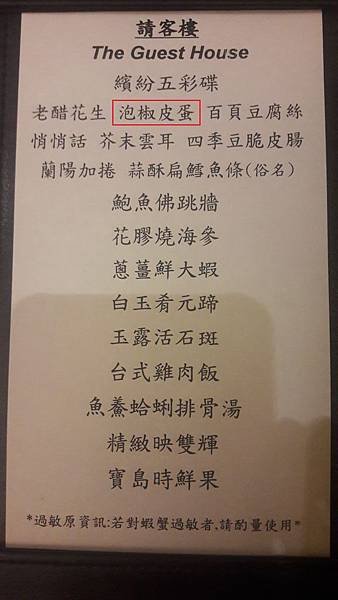 請客樓
The Guest House
繽紛五彩碟
老醋花生 泡椒皮蛋 百頁豆腐絲
悄悄話 芥末雲耳 四季豆脆皮腸
蘭陽加捲 蒜酥扁鱈魚條(俗名)
鮑魚佛跳牆
花膠燒海參
蔥薑鮮大蝦
白玉肴元蹄
玉露活石斑
台式雞肉飯
魚鮝蛤蜊排骨湯
精緻映雙輝
寶島時鮮果
*過敏原資訊:若對蝦蟹過敏者,請酌量使用*